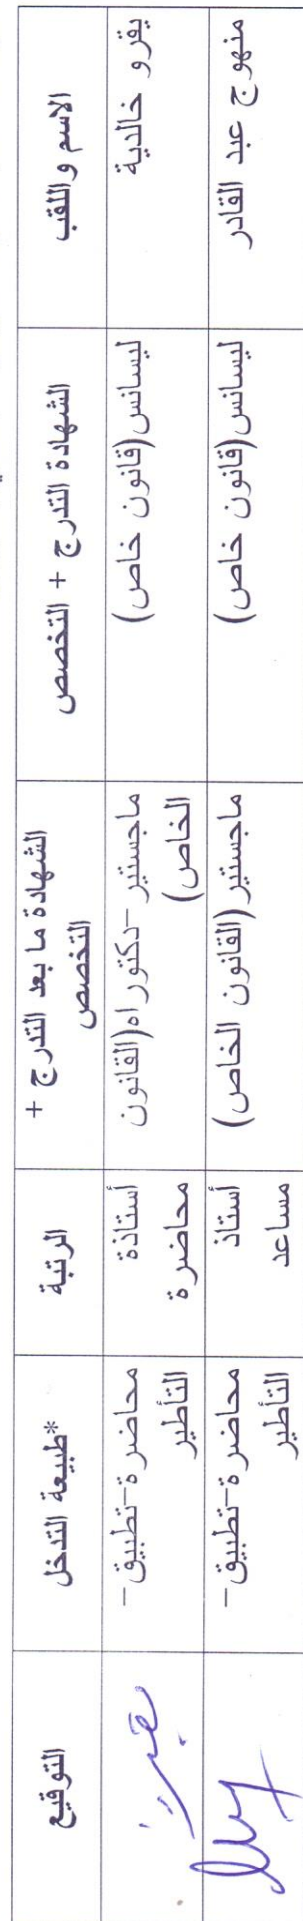 الاسم واللقب
الشهادة التدرج + التخصص
الشهادة ما بعد التدرج +
التخصص
الرتبة
*طبيعة التدخل
التوقيع
يقرو خالدية
ليسانس(قانون خاص)
ماجستير -دكتوراه(القانون
الخاص)
أستاذة
محاضرة
محاضرة-تطبيق-
التأطير
منهوج عبد القادر
ليسانس(قانون خاص)
ماجستير(القانون الخاص)
أستاذ
مساعد
محاضرة-تطبيق-
التأطير